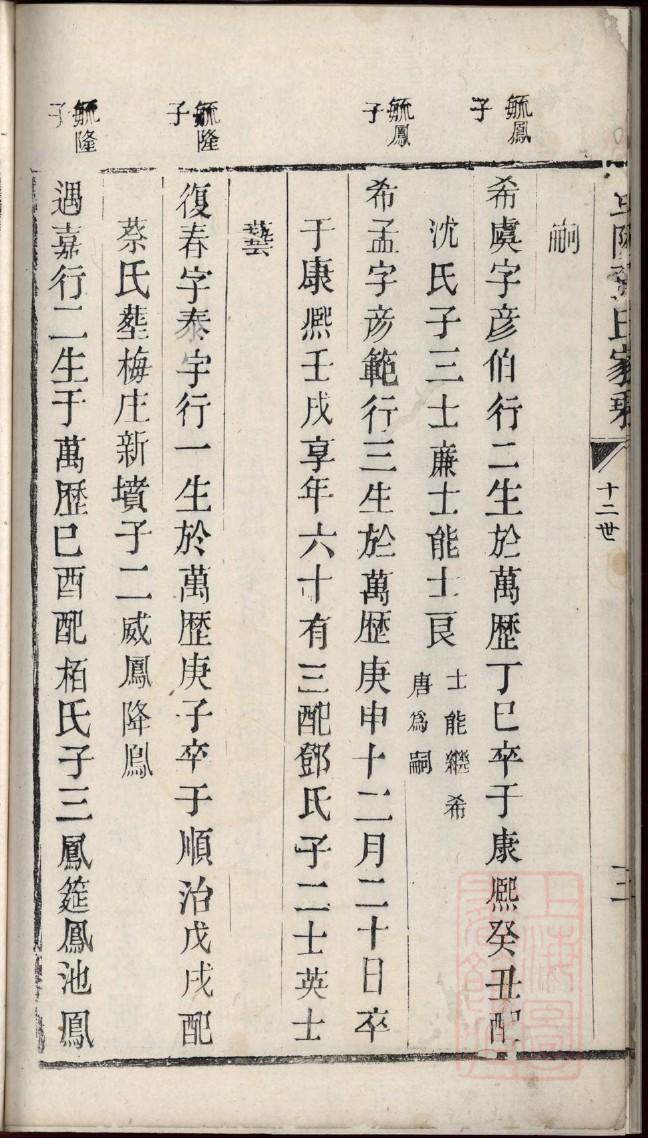 氏家乘
十二世
嗣
毓鳳子
希虞字彥伯行二生於萬歷丁巳卒于康熈癸丑配
沈氏子三士廉士能士良
士能繼希
唐爲嗣
毓鳳子
希孟字彥範行三生於萬歷庚申十二月二十日卒
于康熈壬戌享年六十有三配鄧氏子二士英士
藝
毓隆子
復春字泰宇行一生於萬歷庚子卒于順治戊戌配
蔡氏塟梅庄新墳子二威鳳降鳳
毓隆子
遇嘉行二生于萬歷巳酉配栢氏子三鳳筵鳳池鳳